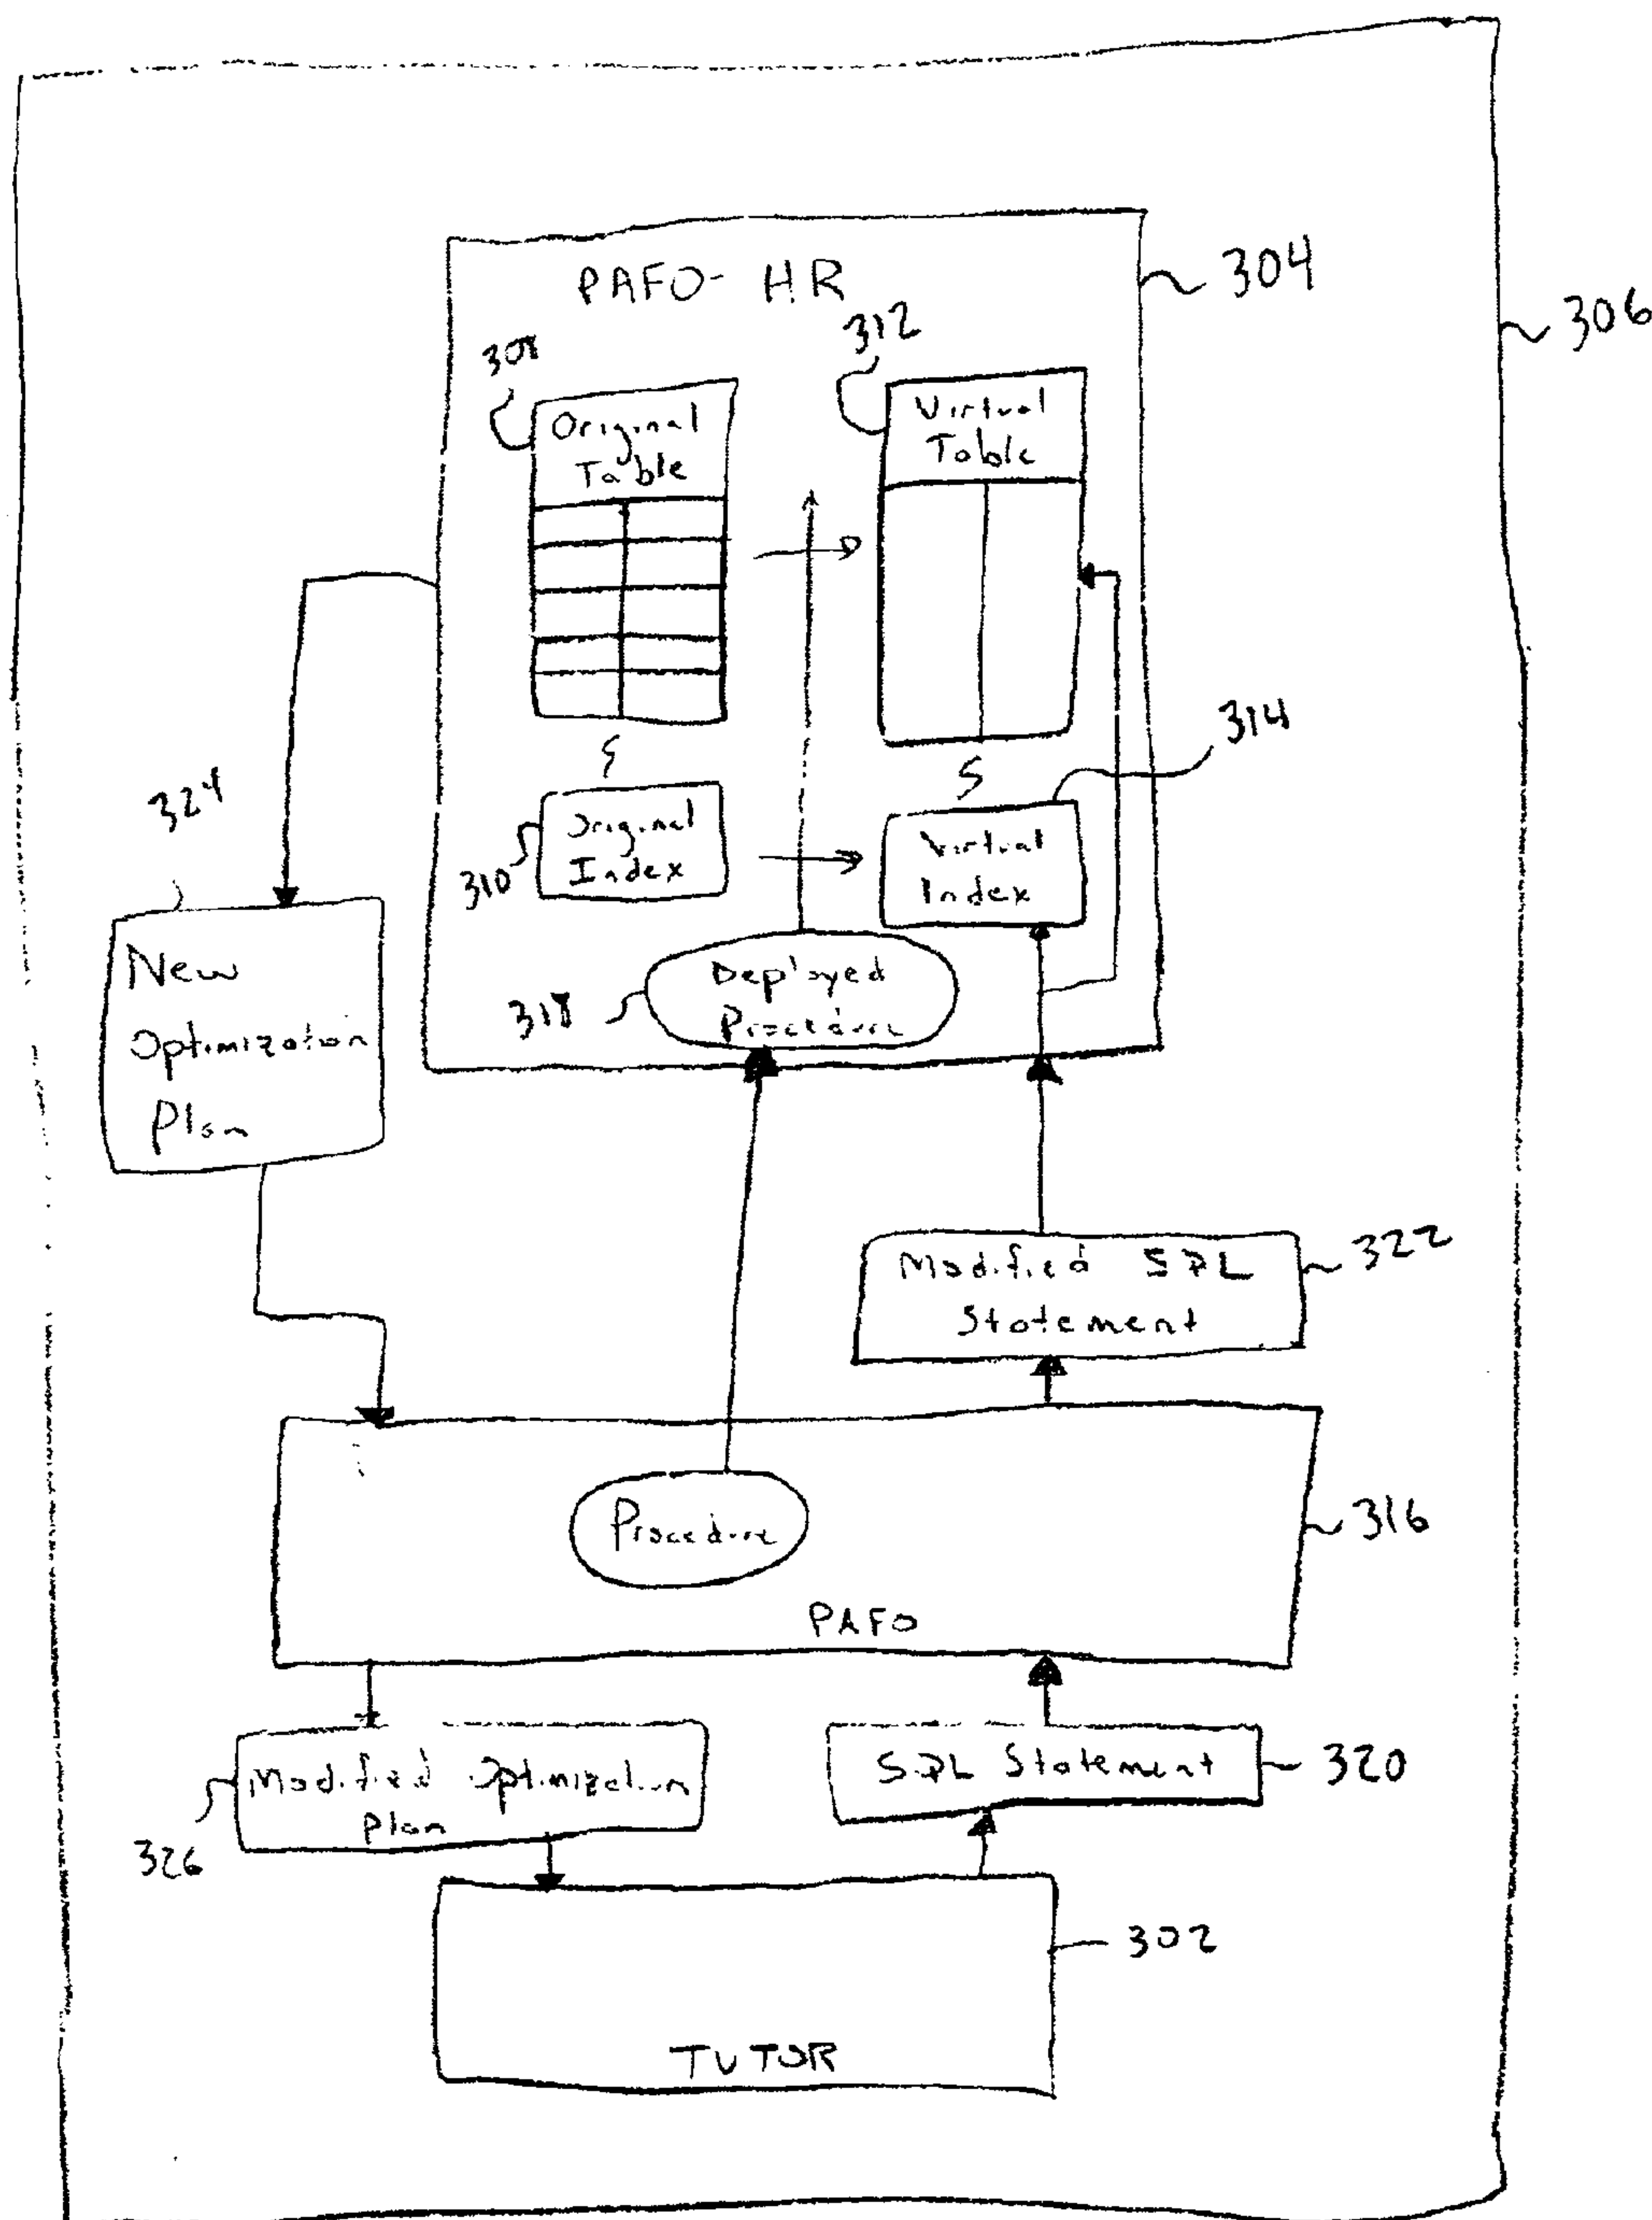 PAFO- HR
304
306
308
312
Original
Table
Virtual
Table
314
324
310
Original
Index
Virtual
Index
New
Optimization
Plan
318
Deployed
Procedure
Modified SQL
Statement
322
Procedure
316
PAFO
Modified Optimization
Plan
326
SQL Statement
320
302
TUTOR